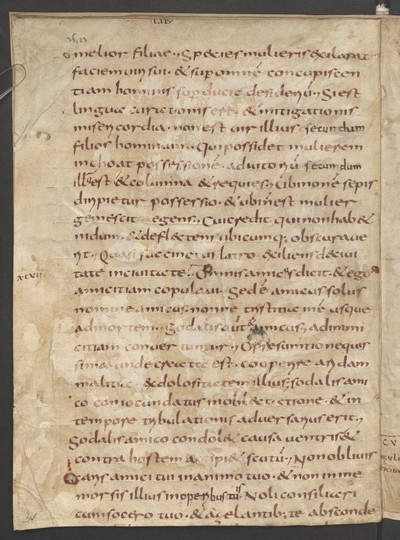 melior filiae. Species mulieris exhilarat
faciem uiri sui. & sup omnē concupiscen
tiam hominis sup ducit desideriū. Si est
linguae curationis est & mitigationis
misericordia. non est uir illius secundum
filios hominum. Qui possidet mulierem
inchoat possessionē. adiutoriū secundum
illū est & columna & requies. Ubi non ē sepis
diripietur possessio. & ubi nō est mulier
gemescit egens. Cui credit qui non hab&
nidum. & deflectens ubicumq; obscuraue
rit. Quasi succinctus latro. exiliens de ciui
xcvii tate in ciuitatē. Omnis amicus dicit. & ego
amicitiam copulaui. Sed ē amicus solus
nomine amicus. nonne tristitia inē usque
ad mortem. Sodalis aūt & amicus. ad inimi
citiam conuertuntur. O presumtio nequis
sima. unde creata est. cooperire aridam
malitia. & dolositatem illius; sodalis ami
co coniocundatur in oblectatione. & in
tempore tribulationis aduersarius erit.
Sodalis amico condol& causa uentris &
contra hostem accipi& scutū. Non obliuis
caris amici tui in animo tuo. & non inme
mor sis illius in operibus tuis. Noli consiliari
cum socero tuo. & a zelantib; te absconde